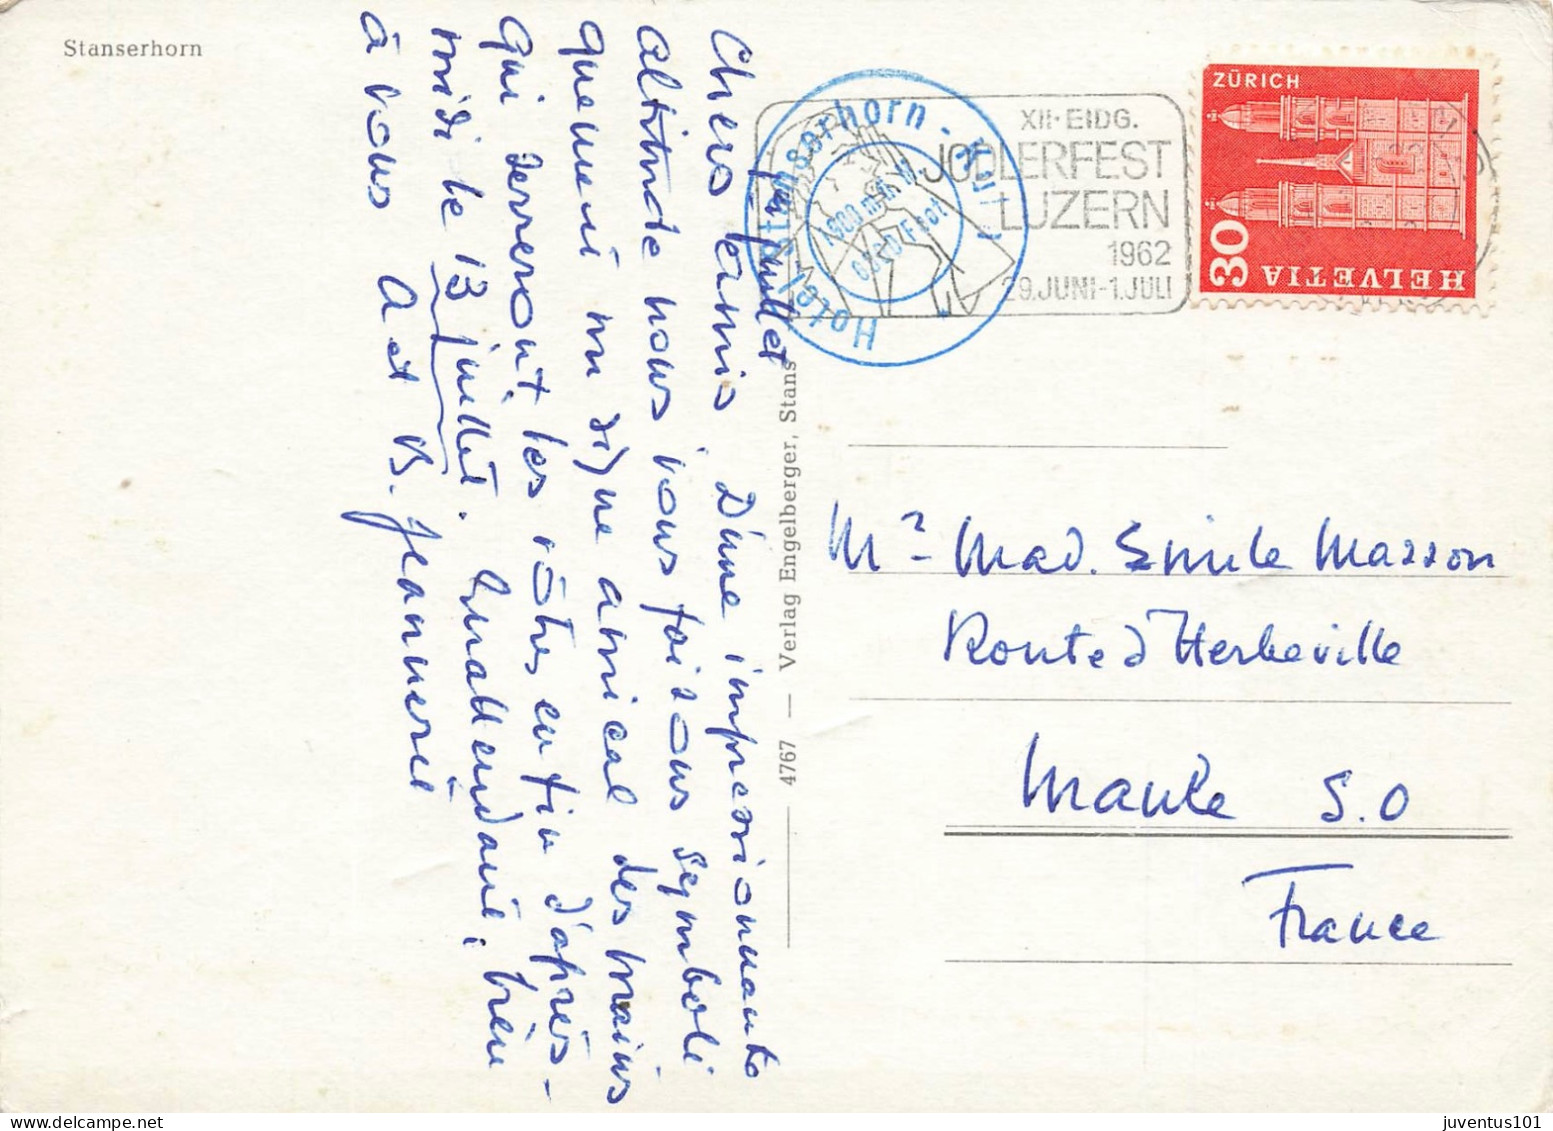 Stanserhorn
juillet
Chers amis. D'une impressionnante
altitude nous vous faisons symboli
quement un signe amical des mains
qui serreront les vôtres en fin d'après-
midi le 13 juillet. En attendant, bien
à vous A et B. Jeannerie
4767 — Verlag Engelberger, Stans
Hotel Stanserhorn-Kulm
1900 m ü. M.
XII·EIDG.
JODLERFEST
LUZERN
1962
29.JUNI-1.JULI
ZÜRICH
30
HELVETIA
Mr Mad. Emile Masson
Route d'Herbeville
Maule S.O
France
juventus101